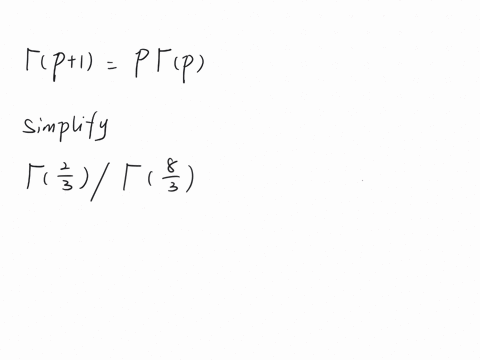 Γ(p+1) = pΓ(p)
Simplify
Γ(2/3) / Γ(8/3)